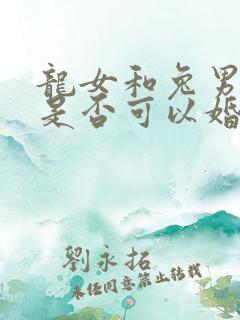 龍女和兔男
是否可以婚
劉永拓
未經同意禁止轉載